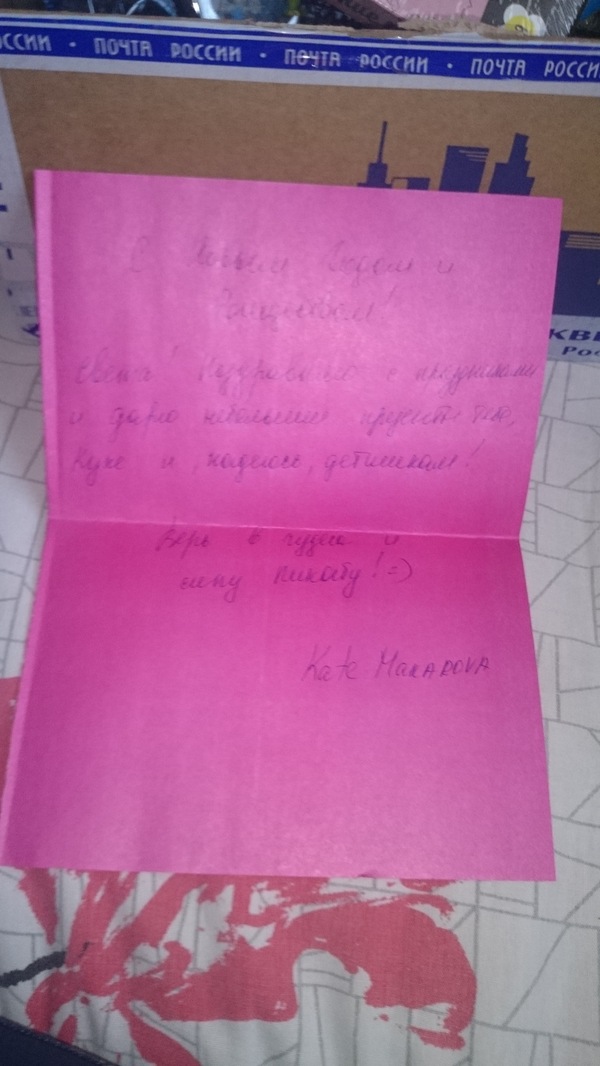 ССИИ • ПОЧТА РОССИИ • ПОЧТА РОССИИ • ПОЧТА РОССИ
С Новым Годом и
Рождеством!
Света! Поздравляю с праздниками
и дарю небольшие презенты тебе,
Куке и, надеюсь, детишкам!
Верь в чудеса и
силу пикабу! =)
Kate Makarova
КВ
Рос